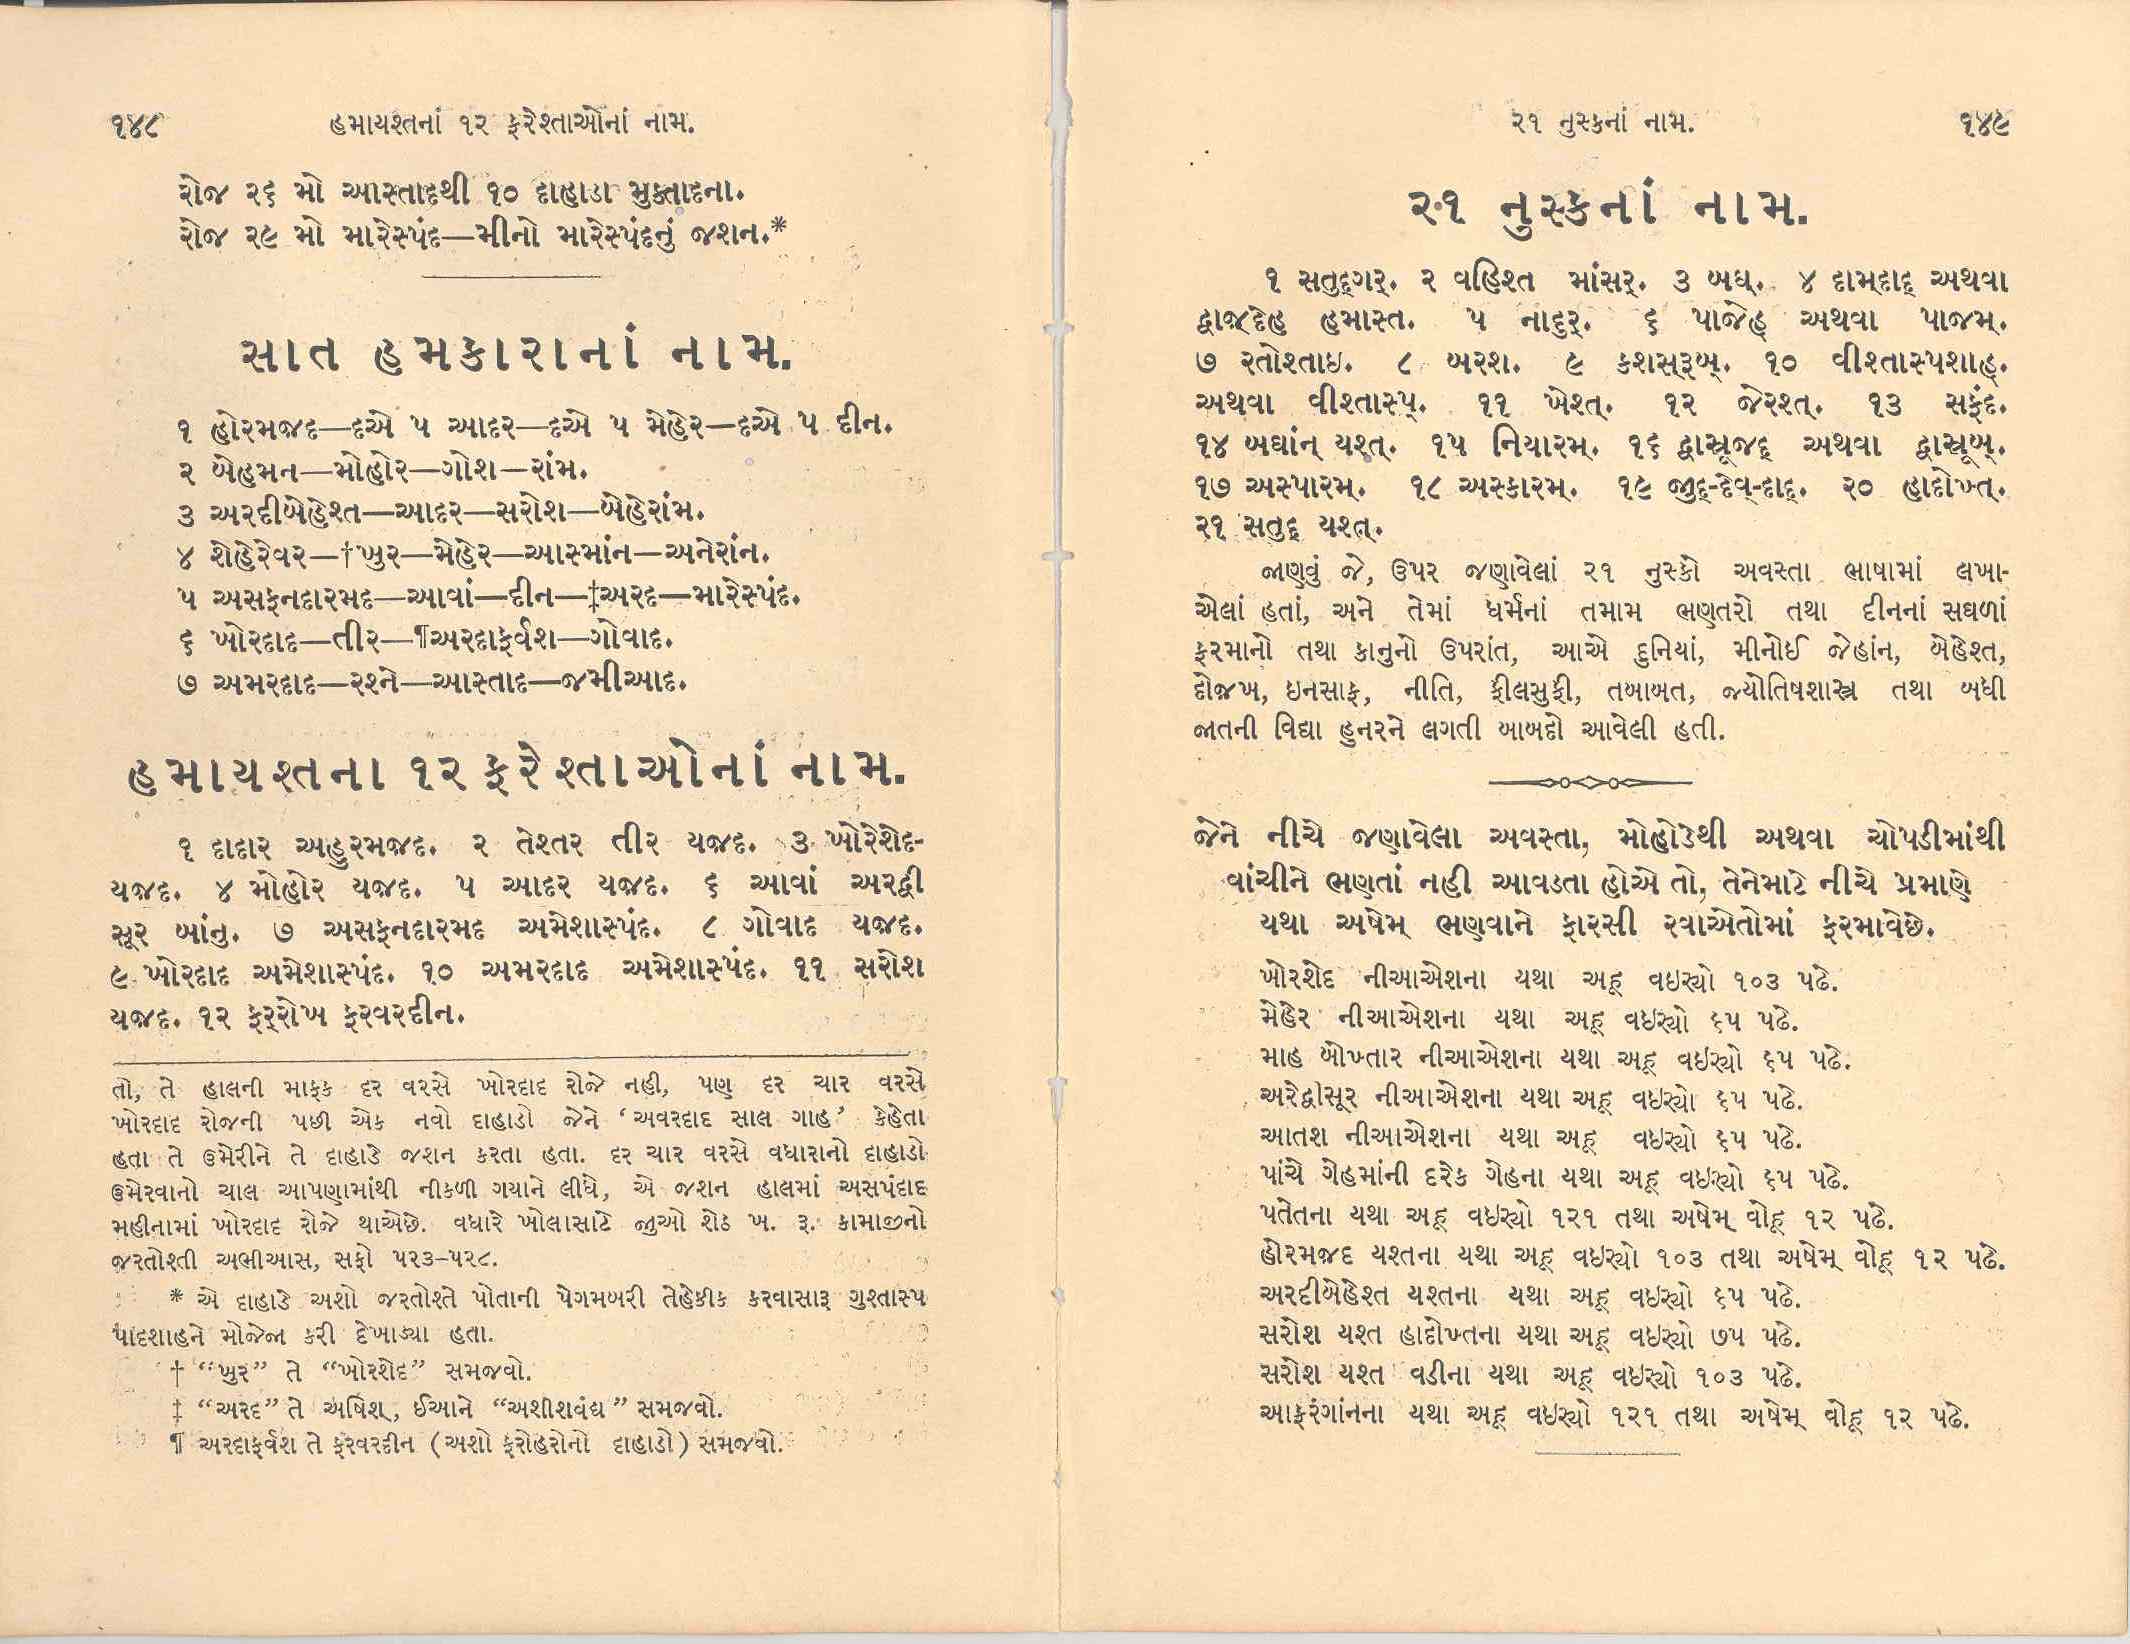 ૧૪૮ હમાયશ્તનાં ૧૨ ફરેશ્તાઓનાં નામ.
રોજ ૨૬ મો આસ્તાદથી ૧૦ દાહાડા મુક્તાદના.
રોજ ૨૯ મો મારેસ્પંદ—મીનો મારેસ્પંદનું જશન.*
સાત હમકારાનાં નામ.
૧ હોરમજ઼દ—દએ પ આદર—દએ પ મેહેર—દએ પ દીન.
૨ બેહમન—મોહોર—ગોશ—રાંમ.
૩ અરદીબેહેશ્ત—આદર—સરોશ—બેહેરાંમ.
૪ શેહેરેવર—†ખુર—મેહેર—આસ્માંન—અનેરાંન.
૫ અસફનદારમદ—આવાં—દીન—‡અરદ—મારેસ્પંદ.
૬ ખોરદાદ—તીર—¶અરદાફર્વશ—ગોવાદ.
૭ અમરદાદ—રશ્ને—આસ્તાદ—જમીઆદ.
હમાયશ્તના ૧૨ ફરેશ્તાઓનાં નામ.
૧ દાદાર અહુરમજ઼દ. ૨ તેશ્તર તીર યજ઼દ. ૩ ખોરેશેદ-
યજ઼દ. ૪ મોહોર યજ઼દ. ૫ આદર યજ઼દ. ૬ આવાં અરદ્વી
સૂર બાંનુ. ૭ અસફનદારમદ અમેશાસ્પંદ. ૮ ગોવાદ યજ઼દ.
૯ ખોરદાદ અમેશાસ્પંદ. ૧૦ અમરદાદ અમેશાસ્પંદ. ૧૧ સરોશ
યજ઼દ. ૧૨ ફર્‌રોખ ફરવરદીન.
તો, તે હાલની માફક દર વરસે ખોરદાદ રોજે નહી, પણ દર ચાર વરસે
ખોરદાદ રોજની પછી એક નવો દાહાડો જેને ‘અવરદાદ સાલ ગાહ’ કેહેતા
હતા તે ઉમેરીને તે દાહાડે જશન કરતા હતા. દર ચાર વરસે વધારાનો દાહાડો
ઉમેરવાનો ચાલ આપણામાંથી નીકળી ગયાને લીધે, એ જશન હાલમાં અસપંદાદ
મહીનામાં ખોરદાદ રોજે થાએછે. વધારે ખોલાસાટે જુઓ શેઠ ખ. રૂ. કામાજીનો
જરતોશ્તી અભીઆસ, સફો ૫૨૩-૫૨૮.
* એ દાહાડે અશો જરતોશ્તે પોતાની પેગમબરી તેહેકીક કરવાસારૂ ગુશ્તાસ્પ
પાદશાહને મોજેજા કરી દેખાડ્યા હતા.
† “ખુર” તે “ખોરશેદ” સમજવો.
‡ “અરદ” તે અષિશ્, ઈઆને “અશીશવંઘ” સમજવો.
¶ અરદાફર્વશ તે ફરવરદીન (અશો ફરોહરોનો દાહાડો) સમજવો.
૨૧ નુસ્કનાં નામ. ૧૪૯
૨૧ નુસ્કનાં નામ.
૧ સતુદ્ગર્. ૨ વહિશ્ત માંસર્. ૩ બઘ્. ૪ દામ્દાદ્ અથવા
દ્વાજ઼્દેહ હમાસ્ત. ૫ નાદુર્. ૬ પાજેહ્ અથવા પાજમ્.
૭ રતોશ્તાઇ. ૮ બરશ. ૯ કશસ્‌રૂબ્. ૧૦ વીશ્તાસ્પશાહ્.
અથવા વીશ્તાસ્પ્. ૧૧ ખેશ્ત્. ૧૨ જેરશ્ત્. ૧૩ સફંદ.
૧૪ બઘાંન્ યશ્ત્. ૧૫ નિયારમ્. ૧૬ દ્વાસ્રૂજદ્ અથવા દ્વાસ્રૂબ્.
૧૭ અસ્પારમ્. ૧૮ અસ્કારમ્. ૧૯ જીદ્-દેવ્-દાદ્. ૨૦ હાદોખ્ત્.
૨૧ સતુદ્ યશ્ત્.
જાણવું જે, ઉપર જણાવેલાં ૨૧ નુસ્કો અવસ્તા ભાષામાં લખા-
એલાં હતાં, અને તેમાં ધર્મનાં તમામ ભણતરો તથા દીનનાં સઘળાં
ફરમાનો તથા કાનુનો ઉપરાંત, આએ દુનિયાં, મીનોઈ જેહાંન, બેહેશ્ત,
દોજ઼ખ, ઇનસાફ, નીતિ, ફીલસુફી, તબાબત, જ્યોતિષશાસ્ત્ર તથા બધી
જાતની વિદ્યા હુનરને લગતી બાબદો આવેલી હતી.
જેને નીચે જણાવેલા અવસ્તા, મોહોડેથી અથવા ચોપડીમાંથી
વાંચીને ભણતાં નહી આવડતા હોએ તો, તેનેમાટે નીચે પ્રમાણે
યથા અષેમ્ ભણવાને ફારસી રવાએતોમાં ફરમાવેછે.
ખોરશેદ નીઆએશના યથા અહૂ વઇર્યો ૧૦૩ પઢે.
મેહેર નીઆએશના યથા અહૂ વઇર્યો ૬૫ પઢે.
માહ બોખ્તાર નીઆએશના યથા અહૂ વઇર્યો ૬૫ પઢે.
અરેદ્વીસૂર નીઆએશના યથા અહૂ વઇર્યો ૬૫ પઢે.
આતશ નીઆએશના યથા અહૂ વઇર્યો ૬૫ પઢે.
પાંચે ગેહમાંની દરેક ગેહના યથા અહૂ વઇર્યો ૬૫ પઢે.
પતેતના યથા અહૂ વઇર્યો ૧૨૧ તથા અષેમ્ વોહૂ ૧૨ પઢે.
હોરમજ઼દ યશ્તના યથા અહૂ વઇર્યો ૧૦૩ તથા અષેમ્ વોહૂ ૧૨ પઢે.
અરદીબેહેશ્ત યશ્તના યથા અહૂ વઇર્યો ૬૫ પઢે.
સરોશ યશ્ત હાદોખ્તના યથા અહૂ વઇર્યો ૭૫ પઢે.
સરોશ યશ્ત વડીના યથા અહૂ વઇર્યો ૧૦૩ પઢે.
આફરંગાંનના યથા અહૂ વઇર્યો ૧૨૧ તથા અષેમ્ વોહૂ ૧૨ પઢે.